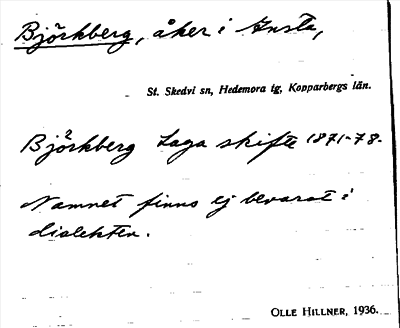 Björkberg, åker i Ansta,
St. Skedvi sn, Hedemora tg, Kopparbergs län.
Björkberg Laga skifte 1871-78.
Namnet finns ej bevarat i
dialekten.
OLLE HILLNER, 1936.